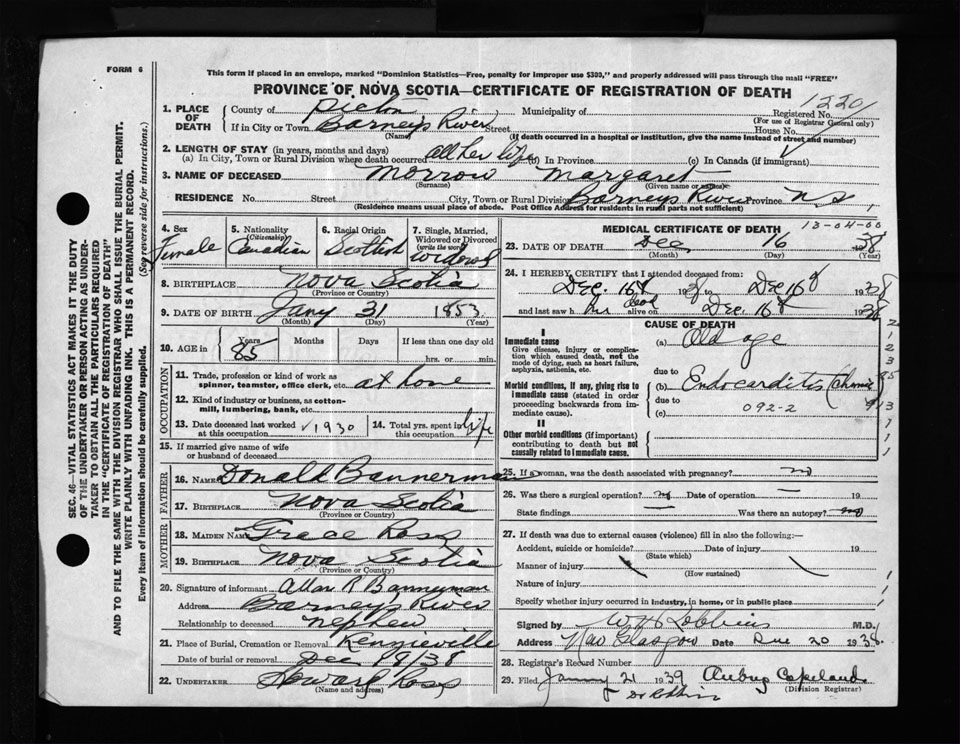 FORM 6
This form if placed in an envelope, marked "Dominion Statistics—Free, penalty for improper use $300," and properly addressed will pass through the mail "FREE"
PROVINCE OF NOVA SCOTIA—CERTIFICATE OF REGISTRATION OF DEATH
1220
1. PLACE OF DEATH
County of Pictou Municipality of Registered No.
(For use of Registrar General only)
If in City or Town Barneys River Street House No.
(Name) (If death occurred in a hospital or institution, give the name instead of street and number)
2. LENGTH OF STAY (in years, months and days)
(a) In City, Town or Rural Division where death occurred all her life (b) In Province (c) In Canada (if immigrant)
3. NAME OF DECEASED Morrow Margaret
(Surname) (Given name or names)
RESIDENCE No. Street City, Town or Rural Division Barneys River Province N.S.
(Residence means usual place of abode. Post Office Address for residents in rural parts not sufficient)
4. Sex Female
5. Nationality (Citizenship) Canadian
6. Racial Origin Scottish
7. Single, Married, Widowed or Divorced (write the word) Widowed
8. BIRTHPLACE Nova Scotia
(Province or Country)
9. DATE OF BIRTH Jany 31 1853
(Month) (Day) (Year)
10. AGE in Years 85 Months Days If less than one day old
hrs. or min.
OCCUPATION
11. Trade, profession or kind of work as spinner, teamster, office clerk, etc. at home
12. Kind of industry or business, as cotton-mill, lumbering, bank, etc.
13. Date deceased last worked at this occupation 1930
14. Total yrs. spent in this occupation life
15. If married give name of wife or husband of deceased
FATHER
16. NAME Donald Bannerman
17. BIRTHPLACE Nova Scotia
(Province or Country)
MOTHER
18. MAIDEN NAME Grace Ross
19. BIRTHPLACE Nova Scotia
(Province or Country)
20. Signature of informant Allan R Bannerman
Address Barneys River
Relationship to deceased nephew
21. Place of Burial, Cremation or Removal Kenzieville
Date of burial or removal Dec 19/38
22. UNDERTAKER Howard Ross
(Name and address)
MEDICAL CERTIFICATE OF DEATH
13-04-00
23. DATE OF DEATH Dec 16 1938
(Month) (Day) (Year)
24. I HEREBY CERTIFY that I attended deceased from:
Dec. 16th 1938 to Dec 16th 1938
and last saw her dead alive on Dec. 16th 1938
CAUSE OF DEATH
I
Immediate cause
Give disease, injury or complication which caused death, not the mode of dying, such as heart failure, asphyxia, asthenia, etc.
(a) Old age
due to
Morbid conditions, if any, giving rise to immediate cause (stated in order proceeding backwards from immediate cause).
(b) Endocarditis (Chronic
due to
(c) 092-2
II
Other morbid conditions (if important) contributing to death but not causally related to immediate cause.
25. If a woman, was the death associated with pregnancy? no
26. Was there a surgical operation? no Date of operation 19
State findings Was there an autopsy? no
27. If death was due to external causes (violence) fill in also the following:—
Accident, suicide or homicide? Date of injury 19
(State which)
Manner of injury
(How sustained)
Nature of injury
Specify whether injury occurred in industry, in home, or in public place
Signed by M.D.
Address New Glasgow Date Dec 20 1938.
28. Registrar's Record Number
29. Filed Janry 21 1939 Copeland
(Division Registrar)
SEC. 46—VITAL STATISTICS ACT MAKES IT THE DUTY
OF THE UNDERTAKER OR PERSON ACTING AS UNDER-
TAKER TO OBTAIN ALL THE PARTICULARS REQUIRED
IN THE "CERTIFICATE OF REGISTRATION OF DEATH"
AND TO FILE THE SAME WITH THE DIVISION REGISTRAR WHO SHALL ISSUE THE BURIAL PERMIT.
WRITE PLAINLY WITH UNFADING INK. THIS IS A PERMANENT RECORD.
Every item of information should be carefully supplied. (See reverse side for instructions.)